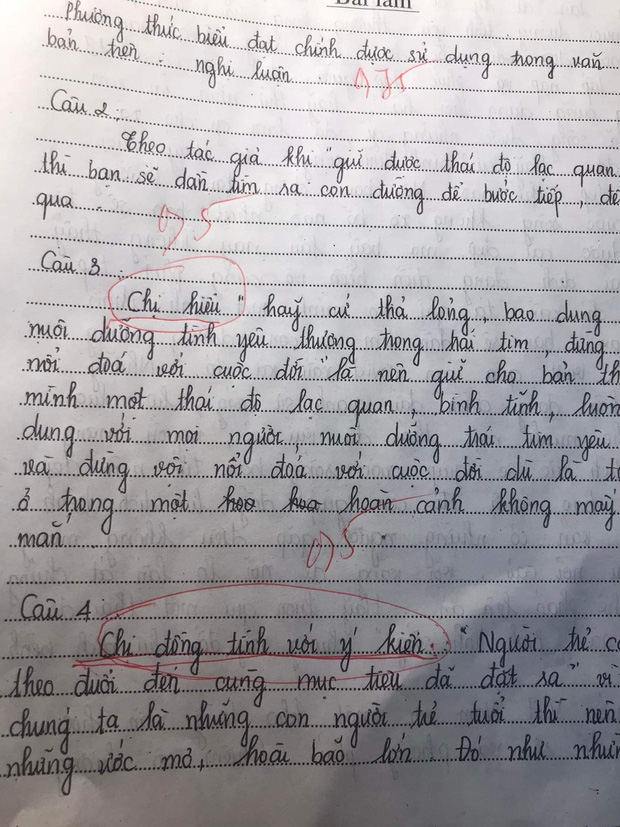 Bài làm
Phương thức biểu đạt chính được sử dụng trong văn
bản trên : nghị luận
0,75
Câu 2:
Theo tác giả khi "giữ được thái độ lạc quan
thì bạn sẽ dần tìm ra con đường để bước tiếp, để
qua
0,5
Câu 3 :
Chị hiểu " hãy cứ thả lỏng, bao dung
nuôi dưỡng tình yêu thương trong trái tim, đừng
nổi đoá với cuộc đời " là nên giữ cho bản th
mình một thái độ lạc quan, bình tĩnh, luôn
dung với mọi người nuôi dưỡng trái tim yêu
và đừng vội nổi đoá với cuộc đời dù là t
ở trong một hoàn cảnh không may
mắn
0,5
Câu 4 :
Chị đồng tình với ý kiến : " Người trẻ c
theo đuổi đến cùng mục tiêu đã đặt ra " vì
chúng ta là những con người trẻ tuổi thì nên
những ước mơ, hoài bão lớn. Đó như nhữn